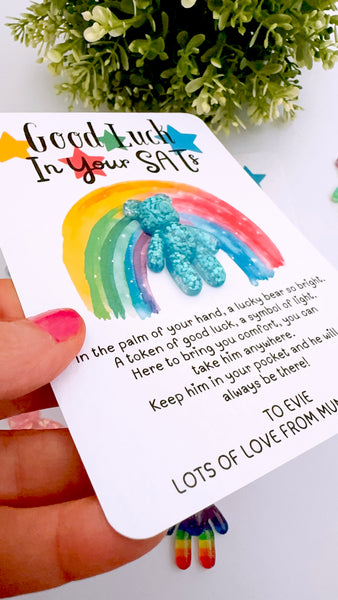 Good Luck
In Your SATs
In the palm of your hand, a lucky bear so bright.
A token of good luck, a symbol of light.
Here to bring you comfort, you can
take him anywhere.
Keep him in your pocket and he will
always be there!
TO EVIE
LOTS OF LOVE FROM MUM